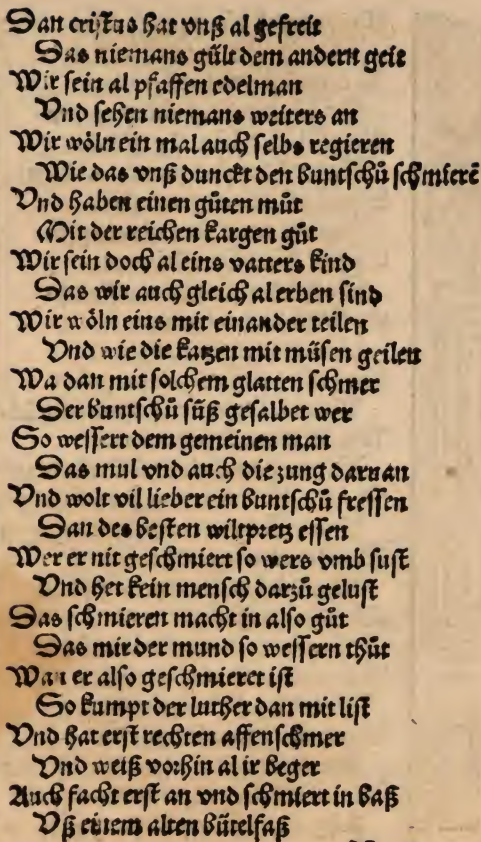 Dan cristus hat vnß al gefreit
Das niemans gült dem andern geit
Wir sein al pfaffen edelman
Vnd sehen niemans weiters an
Wir wöln ein mal auch selbs regieren
Wie das vnß dunckt den buntschů schmierē
Vnd haben einen gůten můt
Mit der reichen kargen gůt
Wir sein doch al eins vatters kind
Das wir auch gleich al erben sind
Wir wöln eins mit einander teilen
Vnd wie die katzen mit müsen geilen
Wa dan mit solchem glatten schmer
Der buntschů süß gesalbet wer
So wessert dem gemeinen man
Das mul vnd auch die zung daruan
Vnd wolt vil lieber ein buntschů fressen
Dan des besten wiltpretz essen
Wer er nit geschmiert so wers vmb sust
Vnd het kein mensch darzů gelust
Das schmieren macht in also gůt
Das mir der mund so wessern thůt
Wan er also geschmieret ist
So kumpt der luther dan mit list
Vnd hat erst rechten affenschmer
Vnd weiß vorhin al ir beger
Auch facht erst an vnd schmiert in baß
Vß einem alten bütelfaß